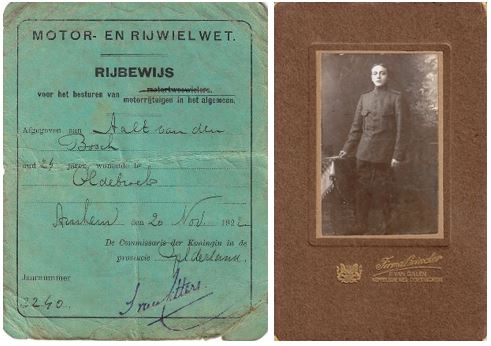 MOTOR- EN RIJWIELWET.
RIJBEWIJS
motortweewielers.
voor het besturen van
motorrijtuigen in het algemeen.
Afgegeven aan Aalt van den
Bosch
oud 24 jaren, wonende te
Oldebroek
Arnhem den 20 Nov. 1922
De Commissaris der Koningin in de
provincie Gelderland.
Jaarnummer
2240.
Firma
F. VAN DALEN
DOETINCHEM